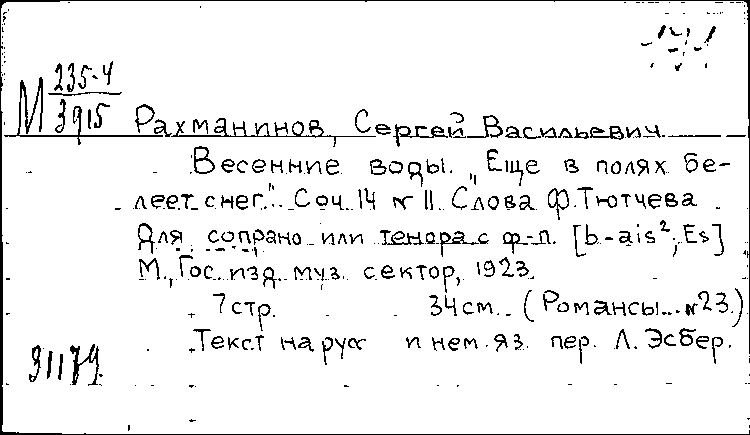 М 235-4
3915
Рахманинов, Сергей Васильевич
Весенние воды. „Еще в полях бе-
леет снег". Соч. 14 № 11. Слова Ф. Тютчева
Для сопрано или тенора с ф-п. [b-ais²; Es]
М., Гос. изд. муз. сектор, 1923.
7 стр. 34 см. (Романсы... № 23.)
Текст на русс и нем. яз. пер. Л. Эсбер.
31179.